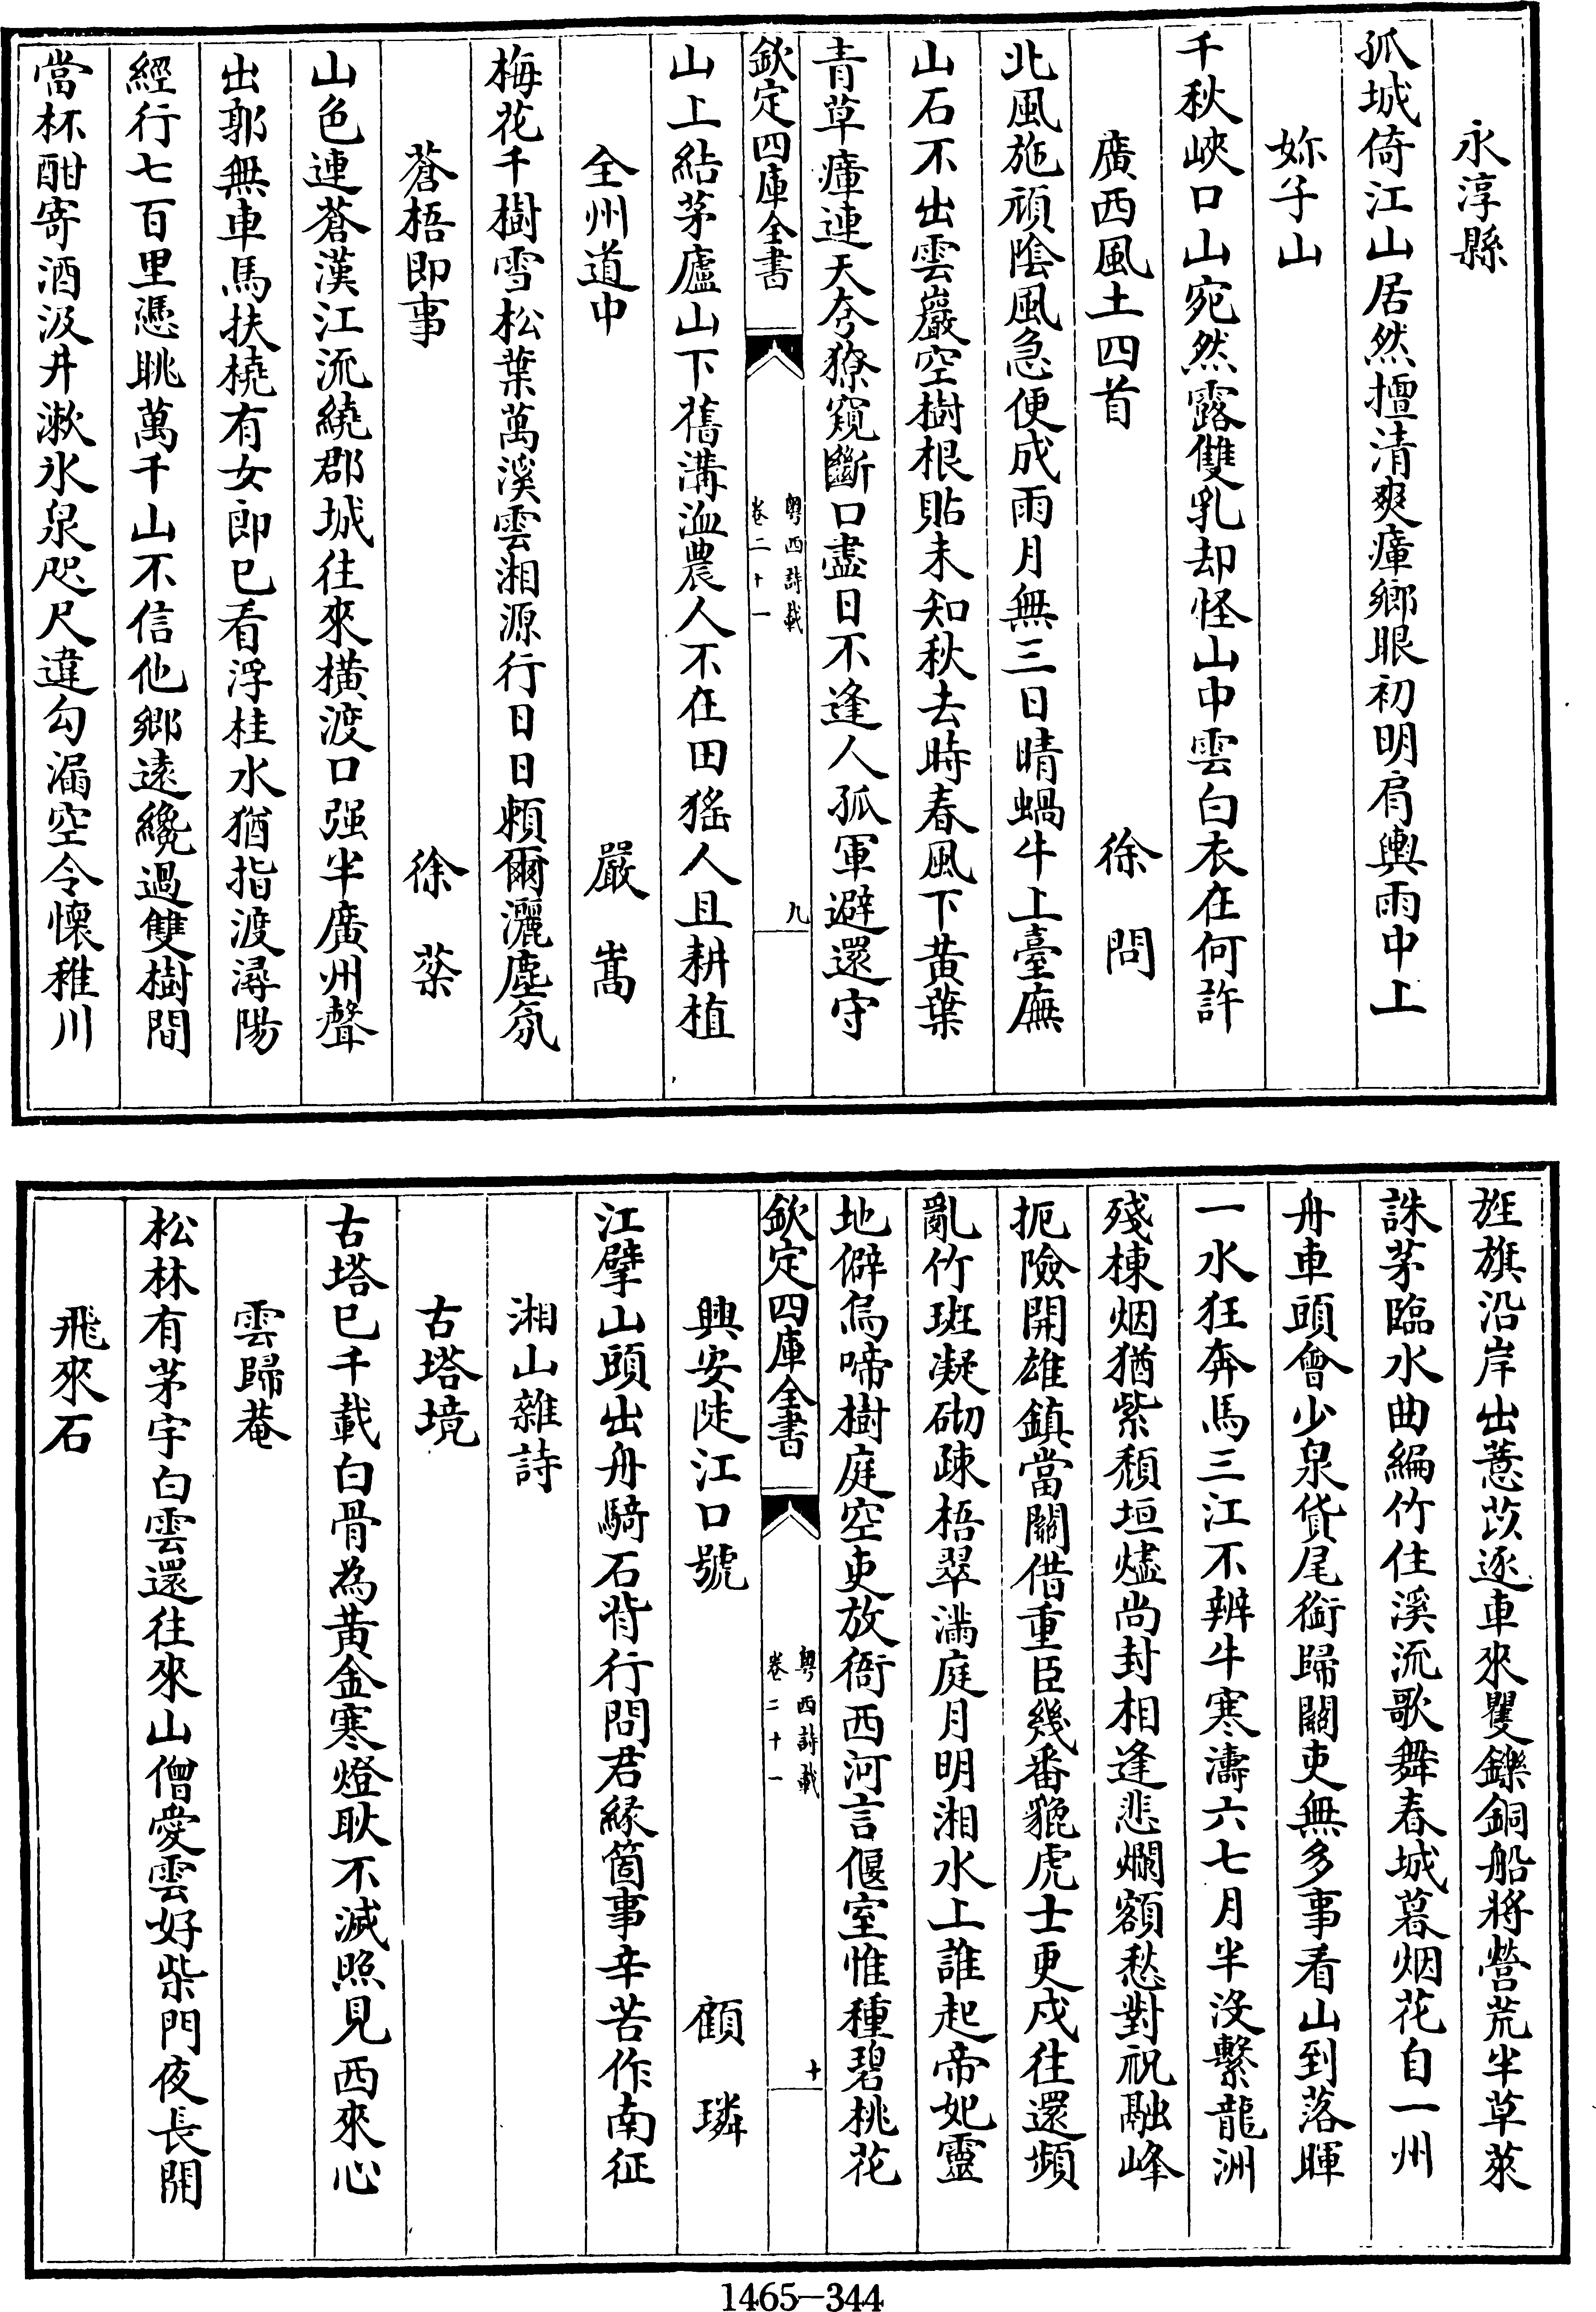 永淳縣
孤城倚江山居然擅清爽瘴鄉眼初明肩輿雨中上
妳子山
千秋峽口山宛然露雙乳却怪山中雲白衣在何許
廣西風土四首　徐問
北風施頑陰風急便成雨月無三日晴蝸牛上臺廡
山石不出雲巖空樹根貼未知秋去時春風下黃葉
青草瘴連天夸獠窺斷口盡日不逢人孤軍避還守
欽定四庫全書　粵西詩載　卷二十一　九
山上結茅廬山下舊溝洫農人不在田猺人且耕植
全州道中　嚴嵩
梅花千樹雪松葉萬溪雲湘源行日日賴爾灑塵氛
蒼梧即事　徐棻
山色連蒼漢江流繞郡城往來橫渡口强半廣州聲
出郭無車馬扶橈有女郎已看浮桂水猶指渡潯陽
經行七百里憑眺萬千山不信他鄉遠纔過雙樹間
當杯酣寄酒汲井漱氷泉咫尺違勾漏空令懷稚川
旌旗沿岸出薏苡逐車來矍鑠銅船將營荒半草萊
誅茅臨水曲編竹住溪流歌舞春城暮烟花自一州
舟車頭會少泉貨尾銜歸關吏無多事看山到落暉
一水狂奔馬三江不辨牛寒濤六七月半沒繫龍洲
殘棟烟猶紫頹垣燼尚封相逢悲爛額愁對祝融峰
扼險開雄鎮當關借重臣幾番貔虎士更戍往還頻
亂竹斑凝砌疎梧翠滿庭月明湘水上誰起帝妃靈
地僻烏啼樹庭空吏放衙西河言偃室惟種碧桃花
欽定四庫全書　粵西詩載　卷二十一　十
興安陡江口號　顧璘
江擘山頭出舟騎石背行問君緣箇事辛苦作南征
湘山雜詩
古塔境
古塔已千載白骨為黃金寒燈耿不滅照見西來心
雲歸菴
松林有茅宇白雲還往來山僧愛雲好柴門夜長開
飛來石
1465—344